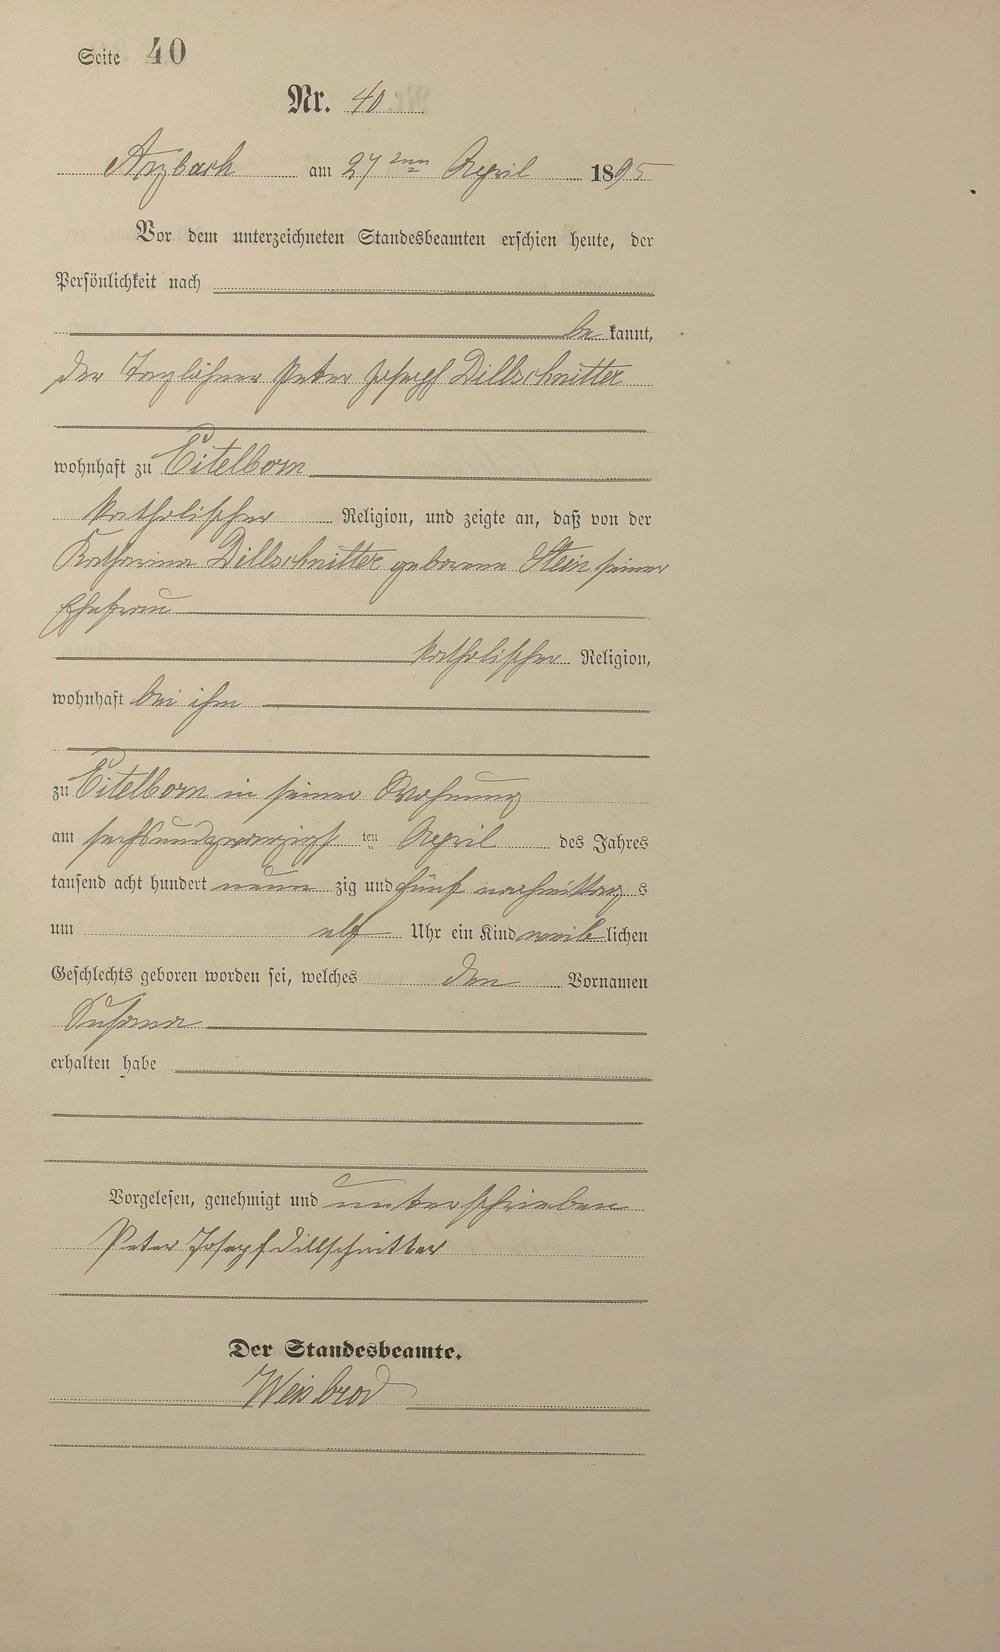 Seite 40
Nr. 40
Arzbach am 27ten April 1895
Vor dem unterzeichneten Standesbeamten erschien heute, der
Persönlichkeit nach
bekannt,
der Taglöhner Peter Josef Dillschnitter
wohnhaft zu Eitelborn
katholischer Religion, und zeigte an, daß von der
Katharina Dillschnitter geborene Stein seiner
Ehefrau
katholischer Religion,
wohnhaft bei ihm
zu Eitelborn in seiner Wohnung
am sechsundzwanzigsten April des Jahres
tausend acht hundert neunzig und fünf nachmittags
um elf Uhr ein Kind weiblichen
Geschlechts geboren worden sei, welches den Vornamen
Susana
erhalten habe
Vorgelesen, genehmigt und unterschrieben
Peter Josepf Dillschnitter
Der Standesbeamte.
Weisbrod